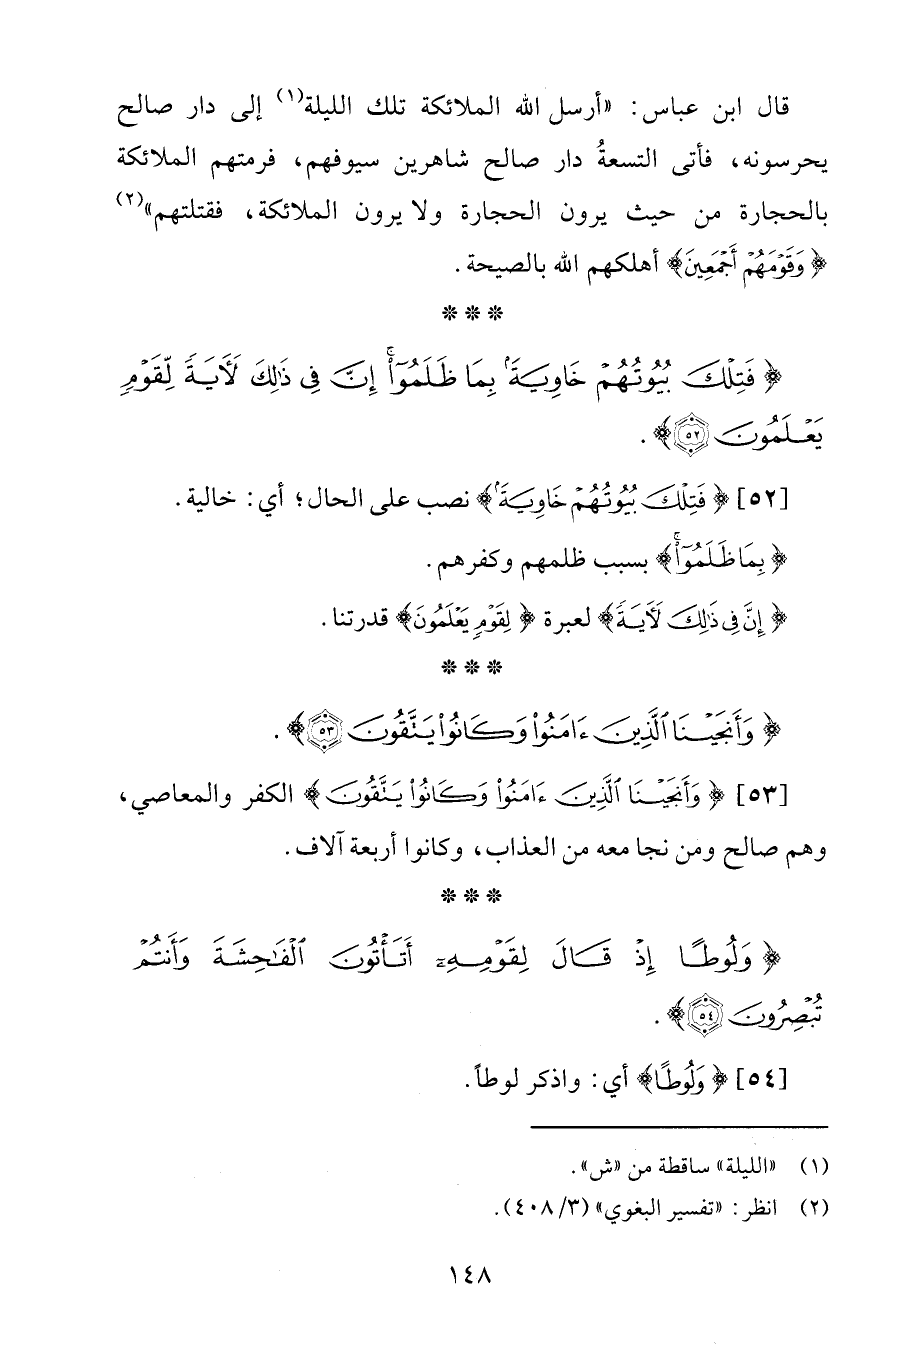 قال ابن عباس: «أرسل الله الملائكة تلك الليلة(١) إلى دار صالح
يحرسونه، فأتى التسعةُ دار صالح شاهرين سيوفهم، فرمتهم الملائكة
بالحجارة من حيث يرون الحجارة ولا يرون الملائكة، فقتلتهم»(٢)
﴿وَقَوْمَهُمْ أَجْمَعِينَ﴾ أهلكهم الله بالصيحة.
* * *
﴿فَتِلْكَ بُيُوتُهُمْ خَاوِيَةَۢ بِمَا ظَلَمُوٓا۟ۚ إِنَّ فِى ذَٰلِكَ لَءَايَةً لِّقَوْمٍ
يَعْلَمُونَ ۝٥٢﴾.
[٥٢] ﴿فَتِلْكَ بُيُوتُهُمْ خَاوِيَةَۢ﴾ نصب على الحال؛ أي: خالية.
﴿بِمَا ظَلَمُوٓا۟ۚ﴾ بسبب ظلمهم وكفرهم.
﴿إِنَّ فِى ذَٰلِكَ لَءَايَةً﴾ لعبرة ﴿لِقَوْمٍ يَعْلَمُونَ﴾ قدرتنا.
* * *
﴿وَأَنجَيْنَا ٱلَّذِينَ ءَامَنُوا۟ وَكَانُوا۟ يَتَّقُونَ ۝٥٣﴾.
[٥٣] ﴿وَأَنجَيْنَا ٱلَّذِينَ ءَامَنُوا۟ وَكَانُوا۟ يَتَّقُونَ﴾ الكفر والمعاصي،
وهم صالح ومن نجا معه من العذاب، وكانوا أربعة آلاف.
* * *
﴿وَلُوطًا إِذْ قَالَ لِقَوْمِهِۦٓ أَتَأْتُونَ ٱلْفَٰحِشَةَ وَأَنتُمْ
تُبْصِرُونَ ۝٥٤﴾.
[٥٤] ﴿وَلُوطًا﴾ أي: واذكر لوطاً.
(١) «الليلة» ساقطة من «ش».
(٢) انظر: «تفسير البغوي» (٣/ ٤٠٨).
١٤٨